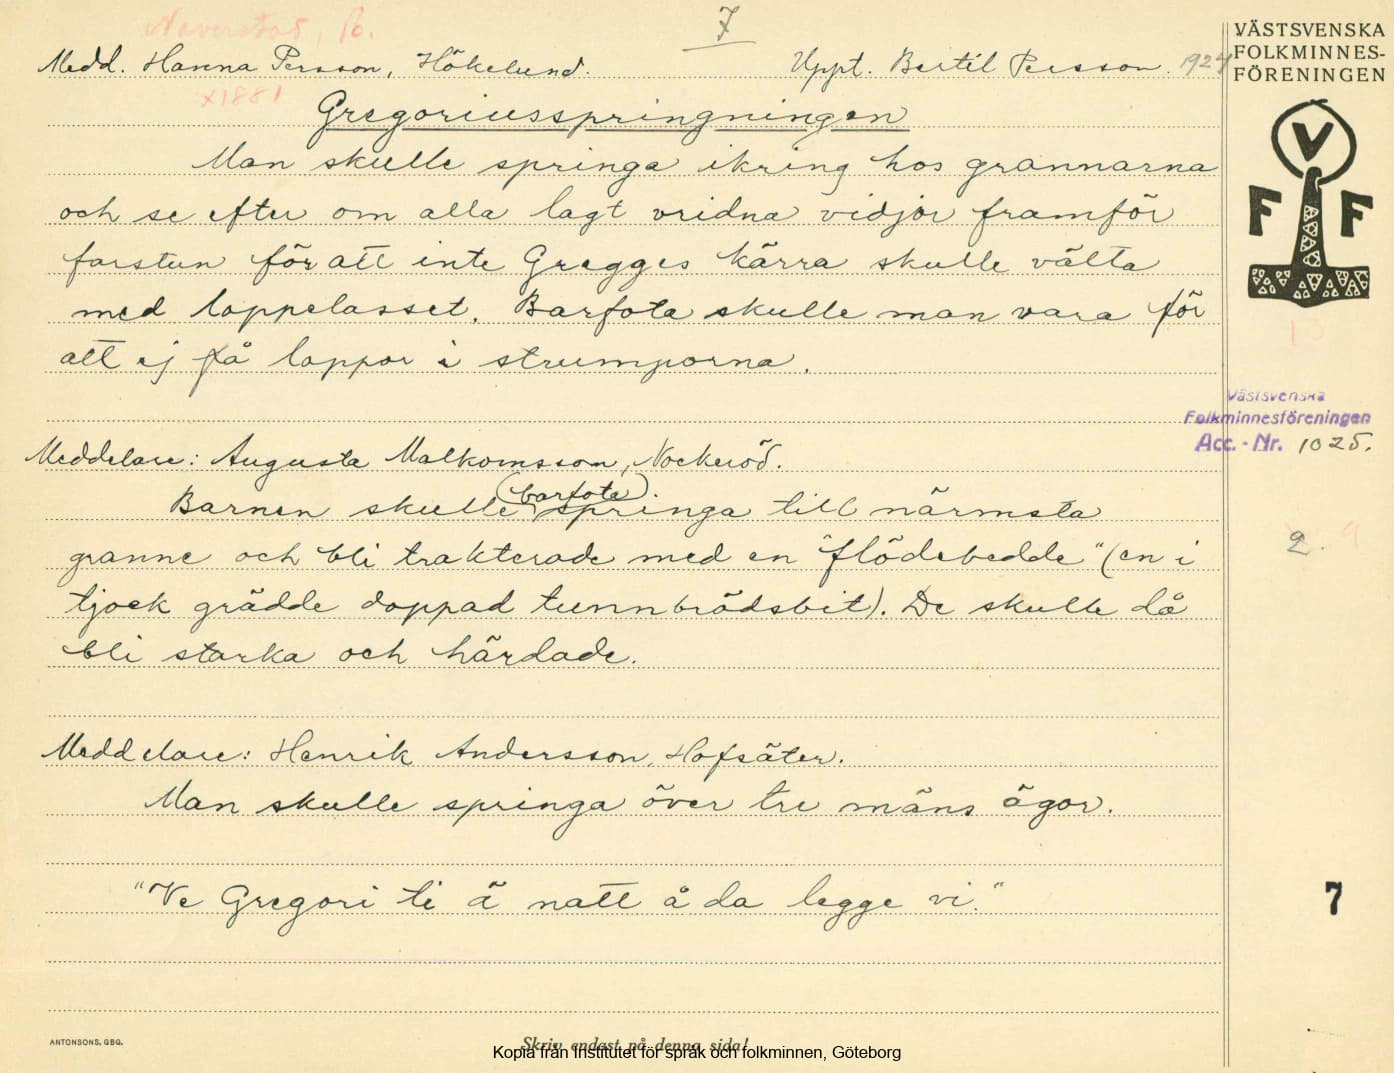 Naverstad, B.
7
Medd. Hanna Persson, Hökelund.
Uppt. Bertil Persson. 1927
x1881
VÄSTSVENSKA
FOLKMINNES-
FÖRENINGEN
Gregoriusspringningen
Man skulle springa ikring hos grannarna
och se efter om alla lagt vridna vidjor framför
farstun för att inte Gregges kärra skulle välta
med loppelasset. Barfota skulle man vara för
att ej få loppor i strumporna.
V
F F
13
Västsvenska
Folkminnesföreningen
Acc. - Nr. 1025.
Meddelare: Augusta Malkomsson, Nockeröd.
Barnen skulle (barfota) springa till närmsta
granne och bli trakterade med en "flödebedde" (en i
tjock grädde doppad tunnbrödsbit). De skulle då
bli starka och härdade.
2. 9
Meddelare: Henrik Andersson, Hofsäter.
Man skulle springa över tre mäns ägor.
"Ve Gregori ti ä natt å da legge vi."
7
ANTONSONS, GBG.
Skriv endast på denna sida!
Kopia från Institutet för språk och folkminnen, Göteborg